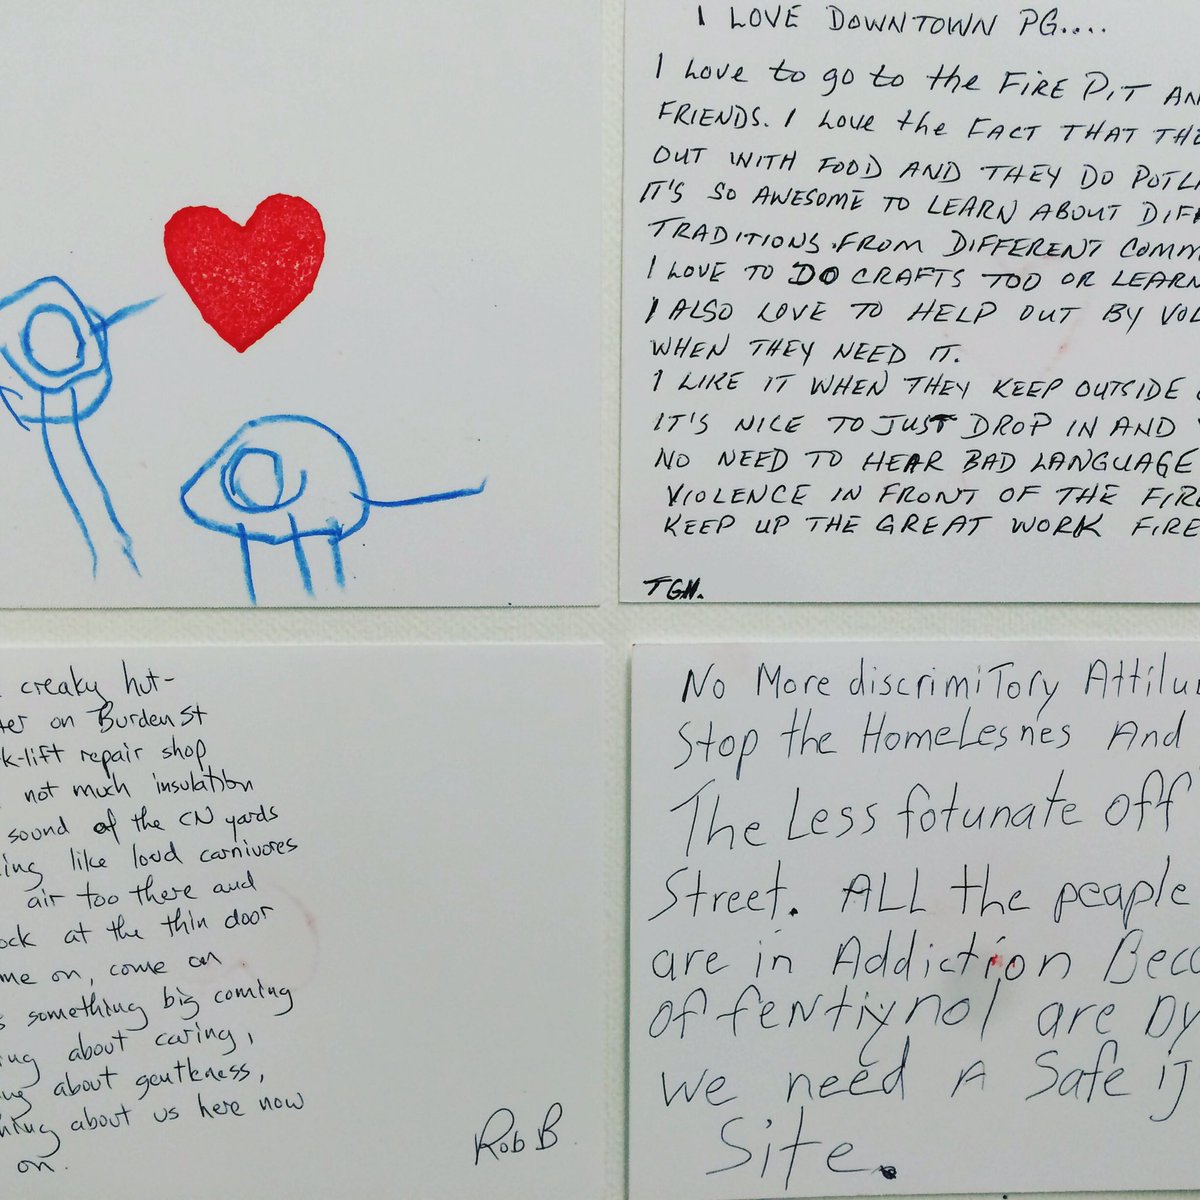 I LOVE DOWNTOWN PG....
I Love to go to the FIRE PIT AN
FRIENDS. I Love the FACT THAT THE
OUT WITH FOOD AND THEY DO POTL
IT'S SO AWESOME TO LEARN ABOUT DIFF
TRADITIONS. FROM DIFFERENT COMM
I LOVE TO DO CRAFTS TOO OR LEARN
I ALSO LOVE TO HELP OUT BY VOL
WHEN THEY NEED IT.
I LIKE IT WHEN THEY KEEP OUTSIDE
IT'S NICE TO JUST DROP IN AND
NO NEED TO HEAR BAD LANGUAGE
VIOLENCE IN FRONT OF THE FIRE
KEEP UP THE GREAT WORK FIRE
TGH.
creaky hut-
ter on Burden St
k-lift repair shop
not much insulation
sound of the CN yards
ing like loud carnivores
air too there and
ock at the thin door
me on, come on
s something big coming
ing about caring,
ng about gentleness,
hing about us here now
on.
Rob B
No More discrimiTory Attitu
Stop the HomeLesnes And
The Less fotunate off
Street. ALL the people
are in Addiction Beca
of feNtiynol are Dy
we need A Safe ij
Site.